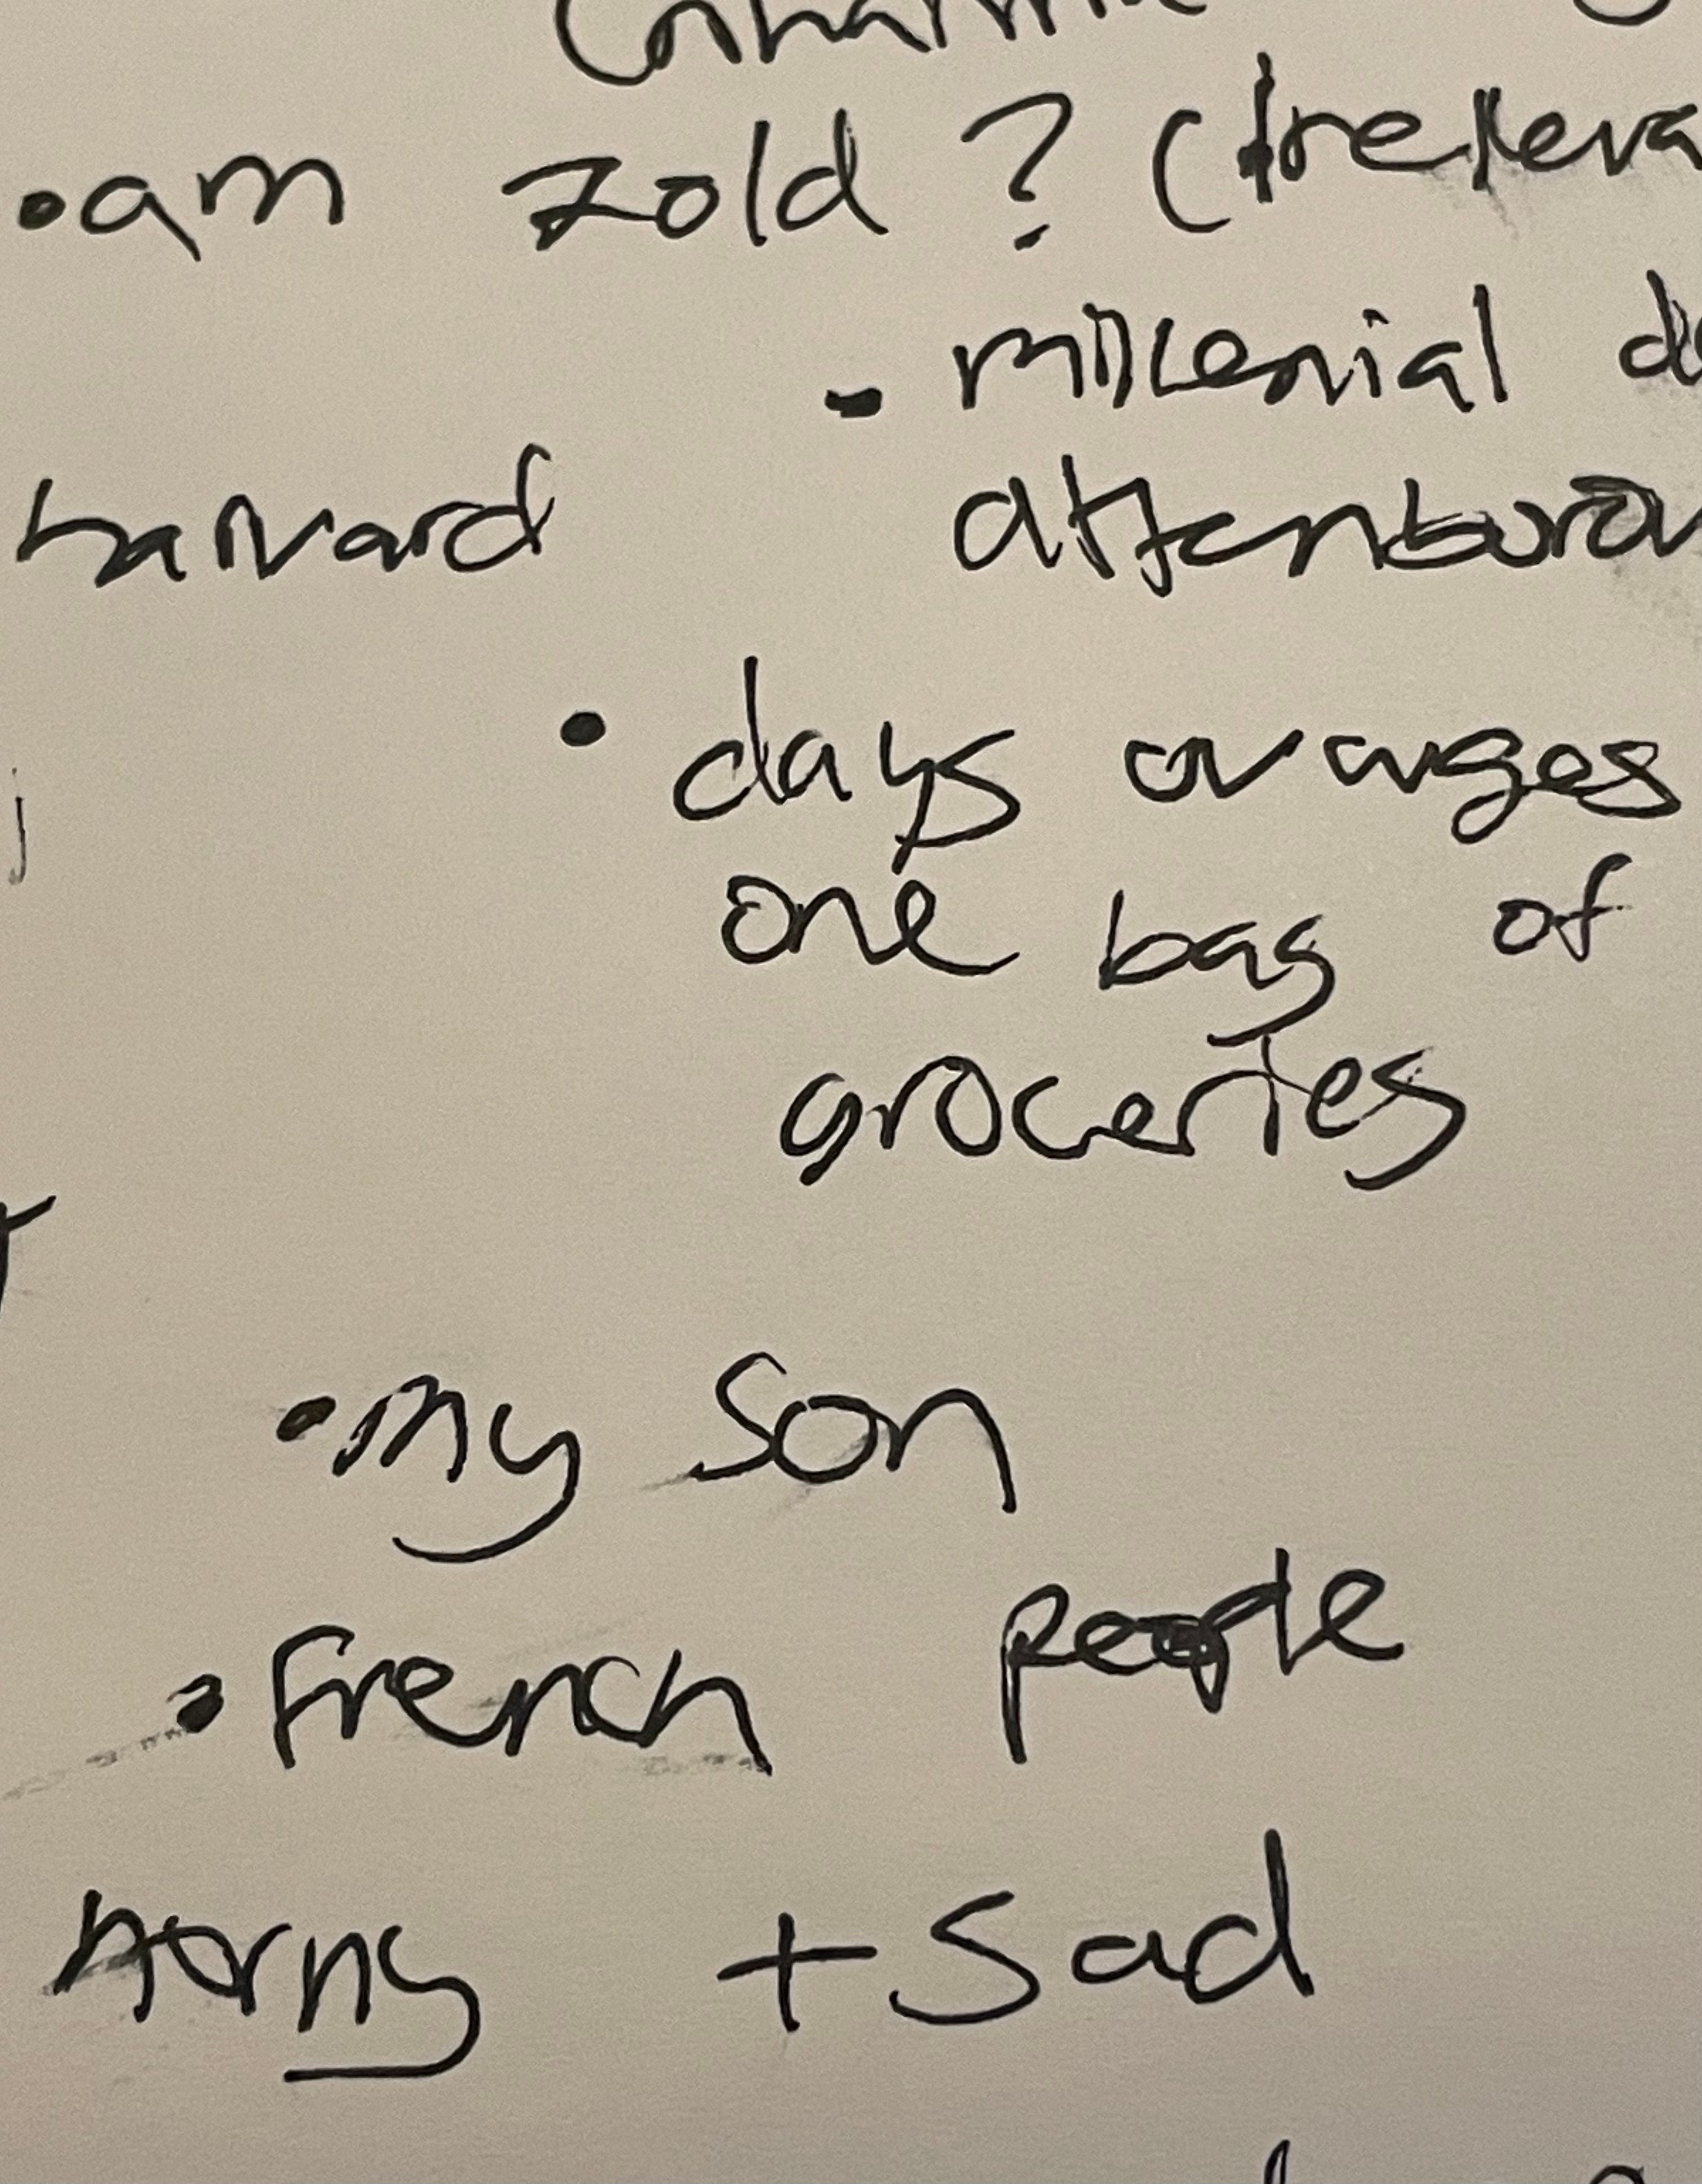 •am zold ? (Irreleva
• millenial d
harvard attenborou
• days
one bag of
groceries
•my son
•french people
horny + sad